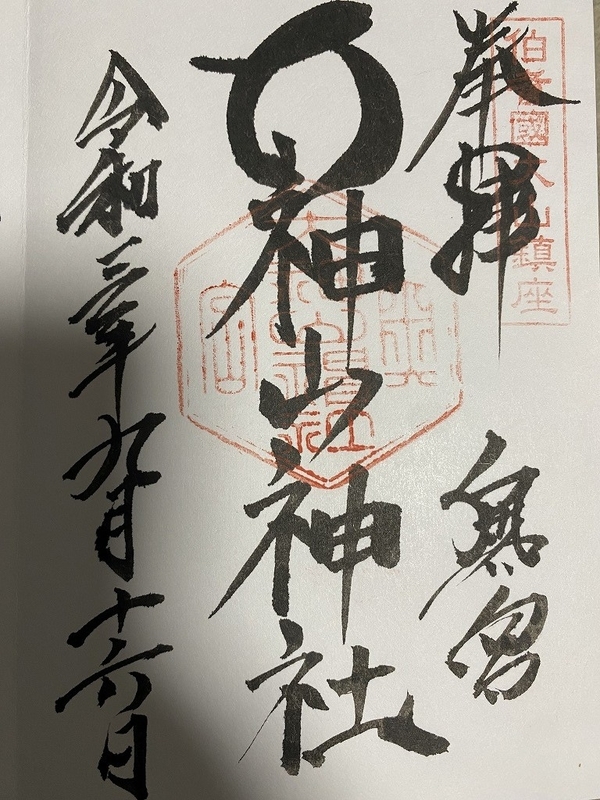 伯耆國大山鎮座
奉拝
奥宮
大神山神社
令和三年九月十六日